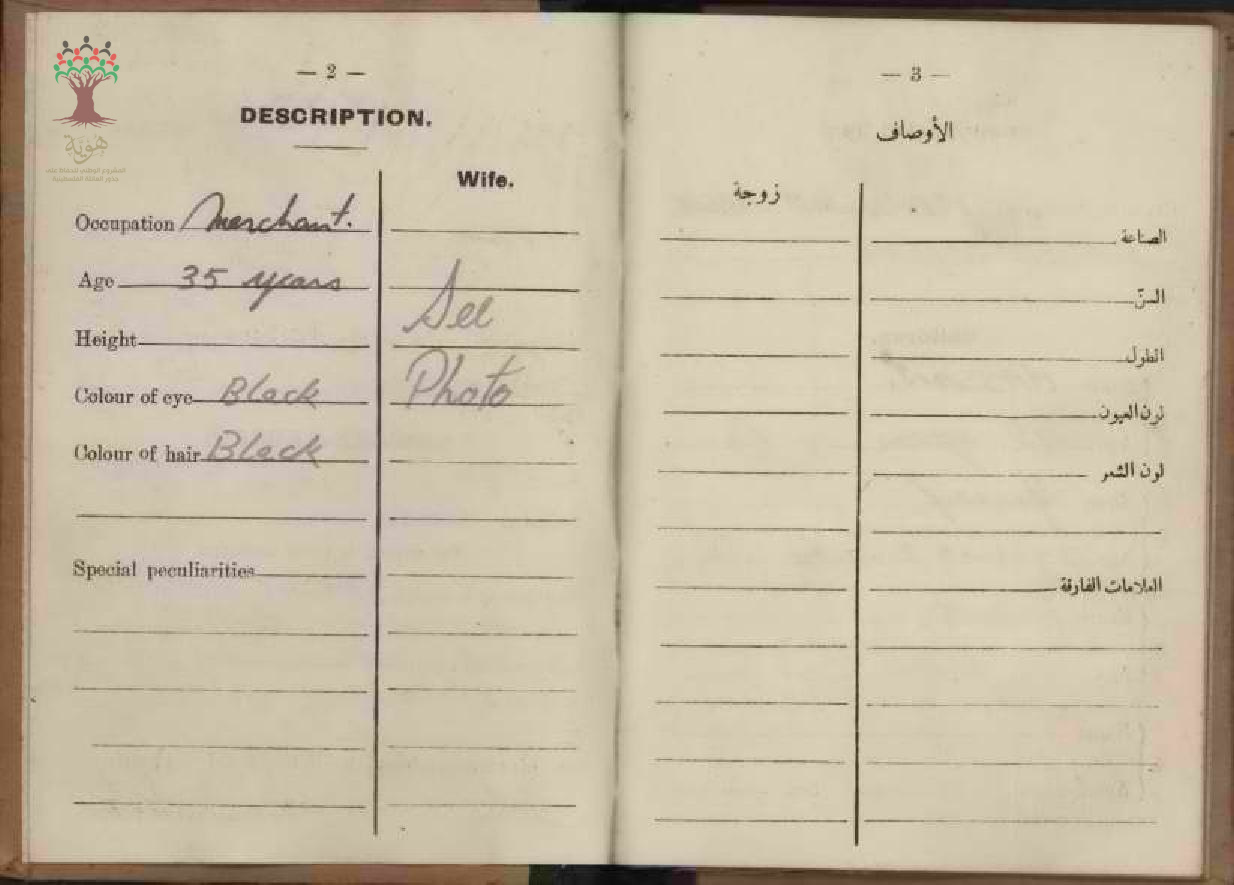 هوية
— 2 —
DESCRIPTION.
Wife.
Occupation Merchant.
Age 35 years
See
Height
Photo
Colour of eye Black
Colour of hair Black
Special peculiarities
— 3 —
الأوصاف
زوجة
الصناعة
السنّ
الطول
لون العيون
لون الشعر
العلامات الفارقة